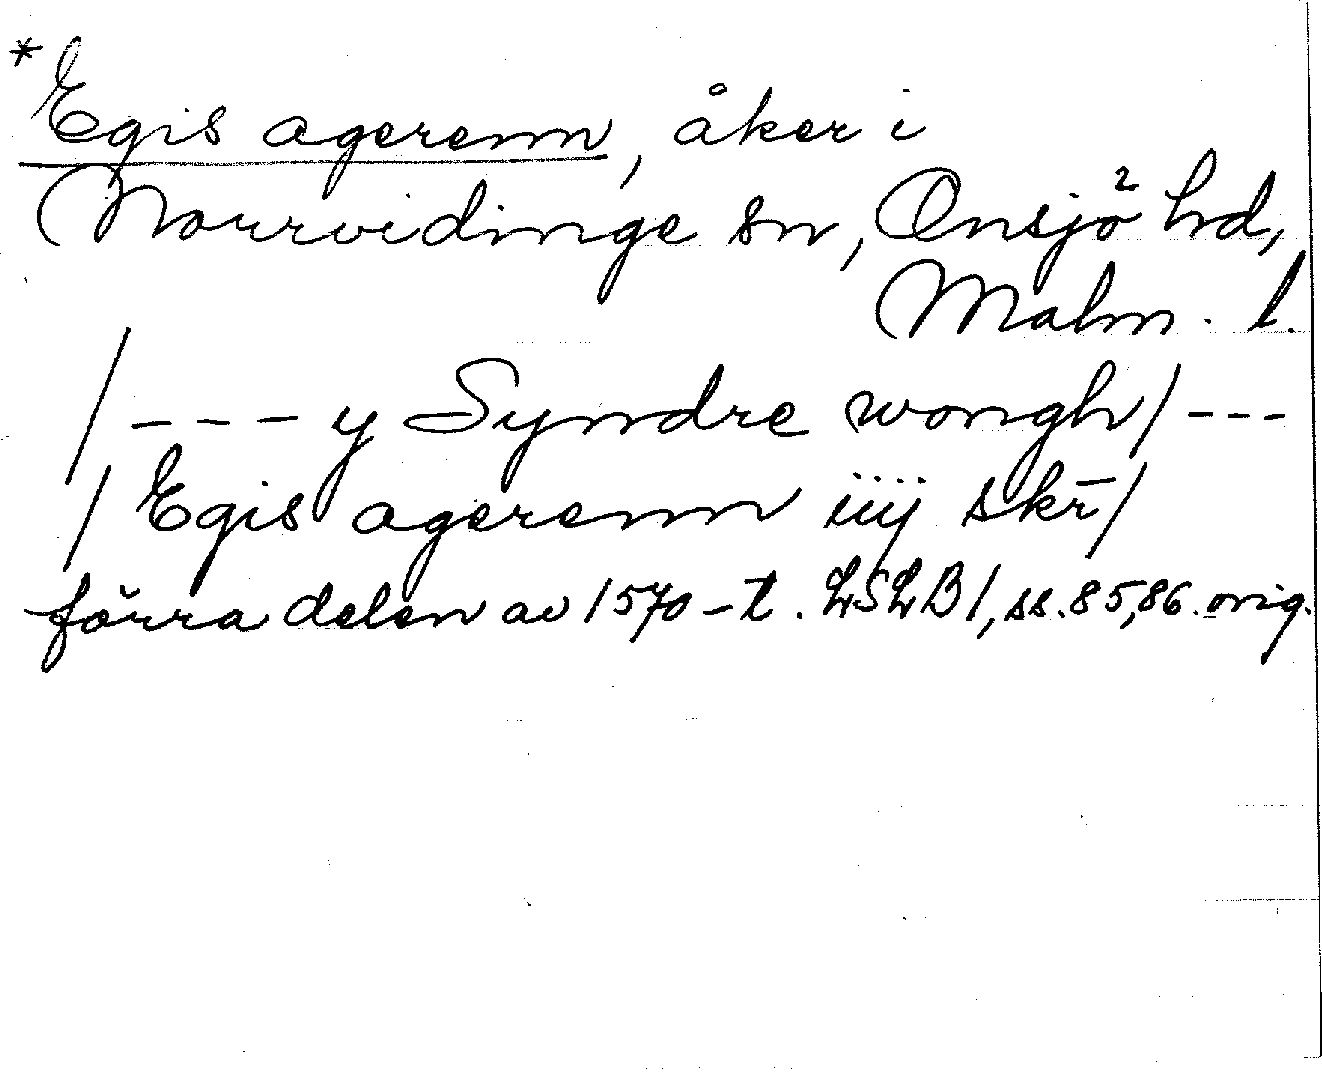 *Egis agerenn, åker i
Norrvidinge sn, Onsjö hd,
Malm. l.
/ - - - y Syndre wongh / - - -
/ Egis agerenn iiij skr̄ /
förra delen av 1570-t. LSLB 1, ss. 85, 86. orig.